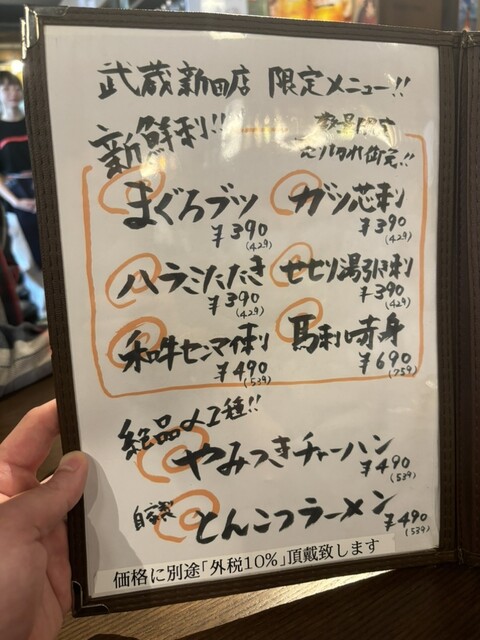 武蔵新田店 限定メニュー!!
新鮮刺!!
数量限定
売り切れ御免!!
まぐろブツ
¥390
(429)
ガツ芯刺
¥390
(429)
ハラミたたき
¥390
(429)
セセリ湯引き刺
¥390
(429)
和牛センマイ刺
¥490
(539)
馬刺し赤身
¥690
(759)
絶品〆2種!!
やみつきチャーハン
¥490
(539)
自家製 とんこつラーメン
¥490
(539)
価格に別途「外税10%」頂戴致します